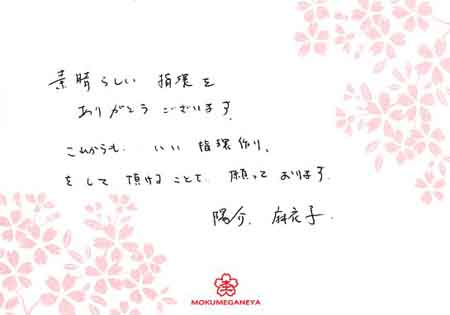 素晴らしい 指環を
ありがとうございます。
これからも、いい指環作り、
をして頂けることを、願っております。
陽介、麻衣子.
MOKUMEGANEYA